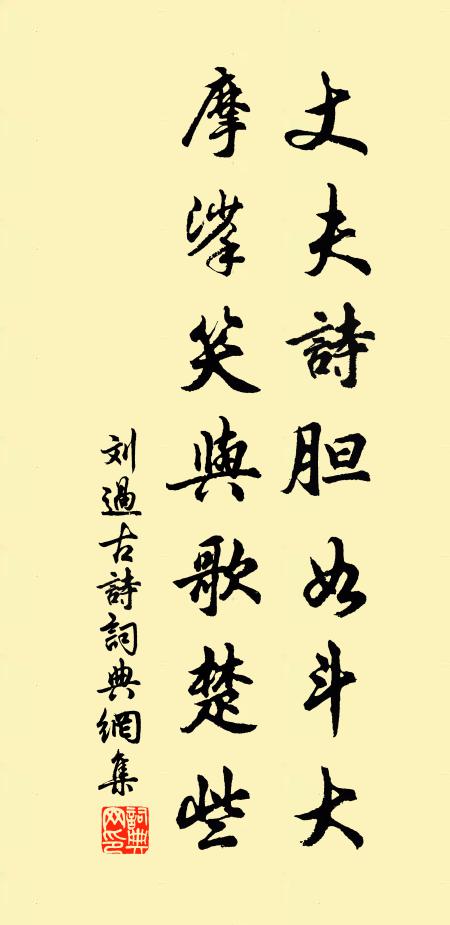 丈夫詩胆如斗大
摩挲笑與歌楚些
刘過古詩詞典網集
詞典網印